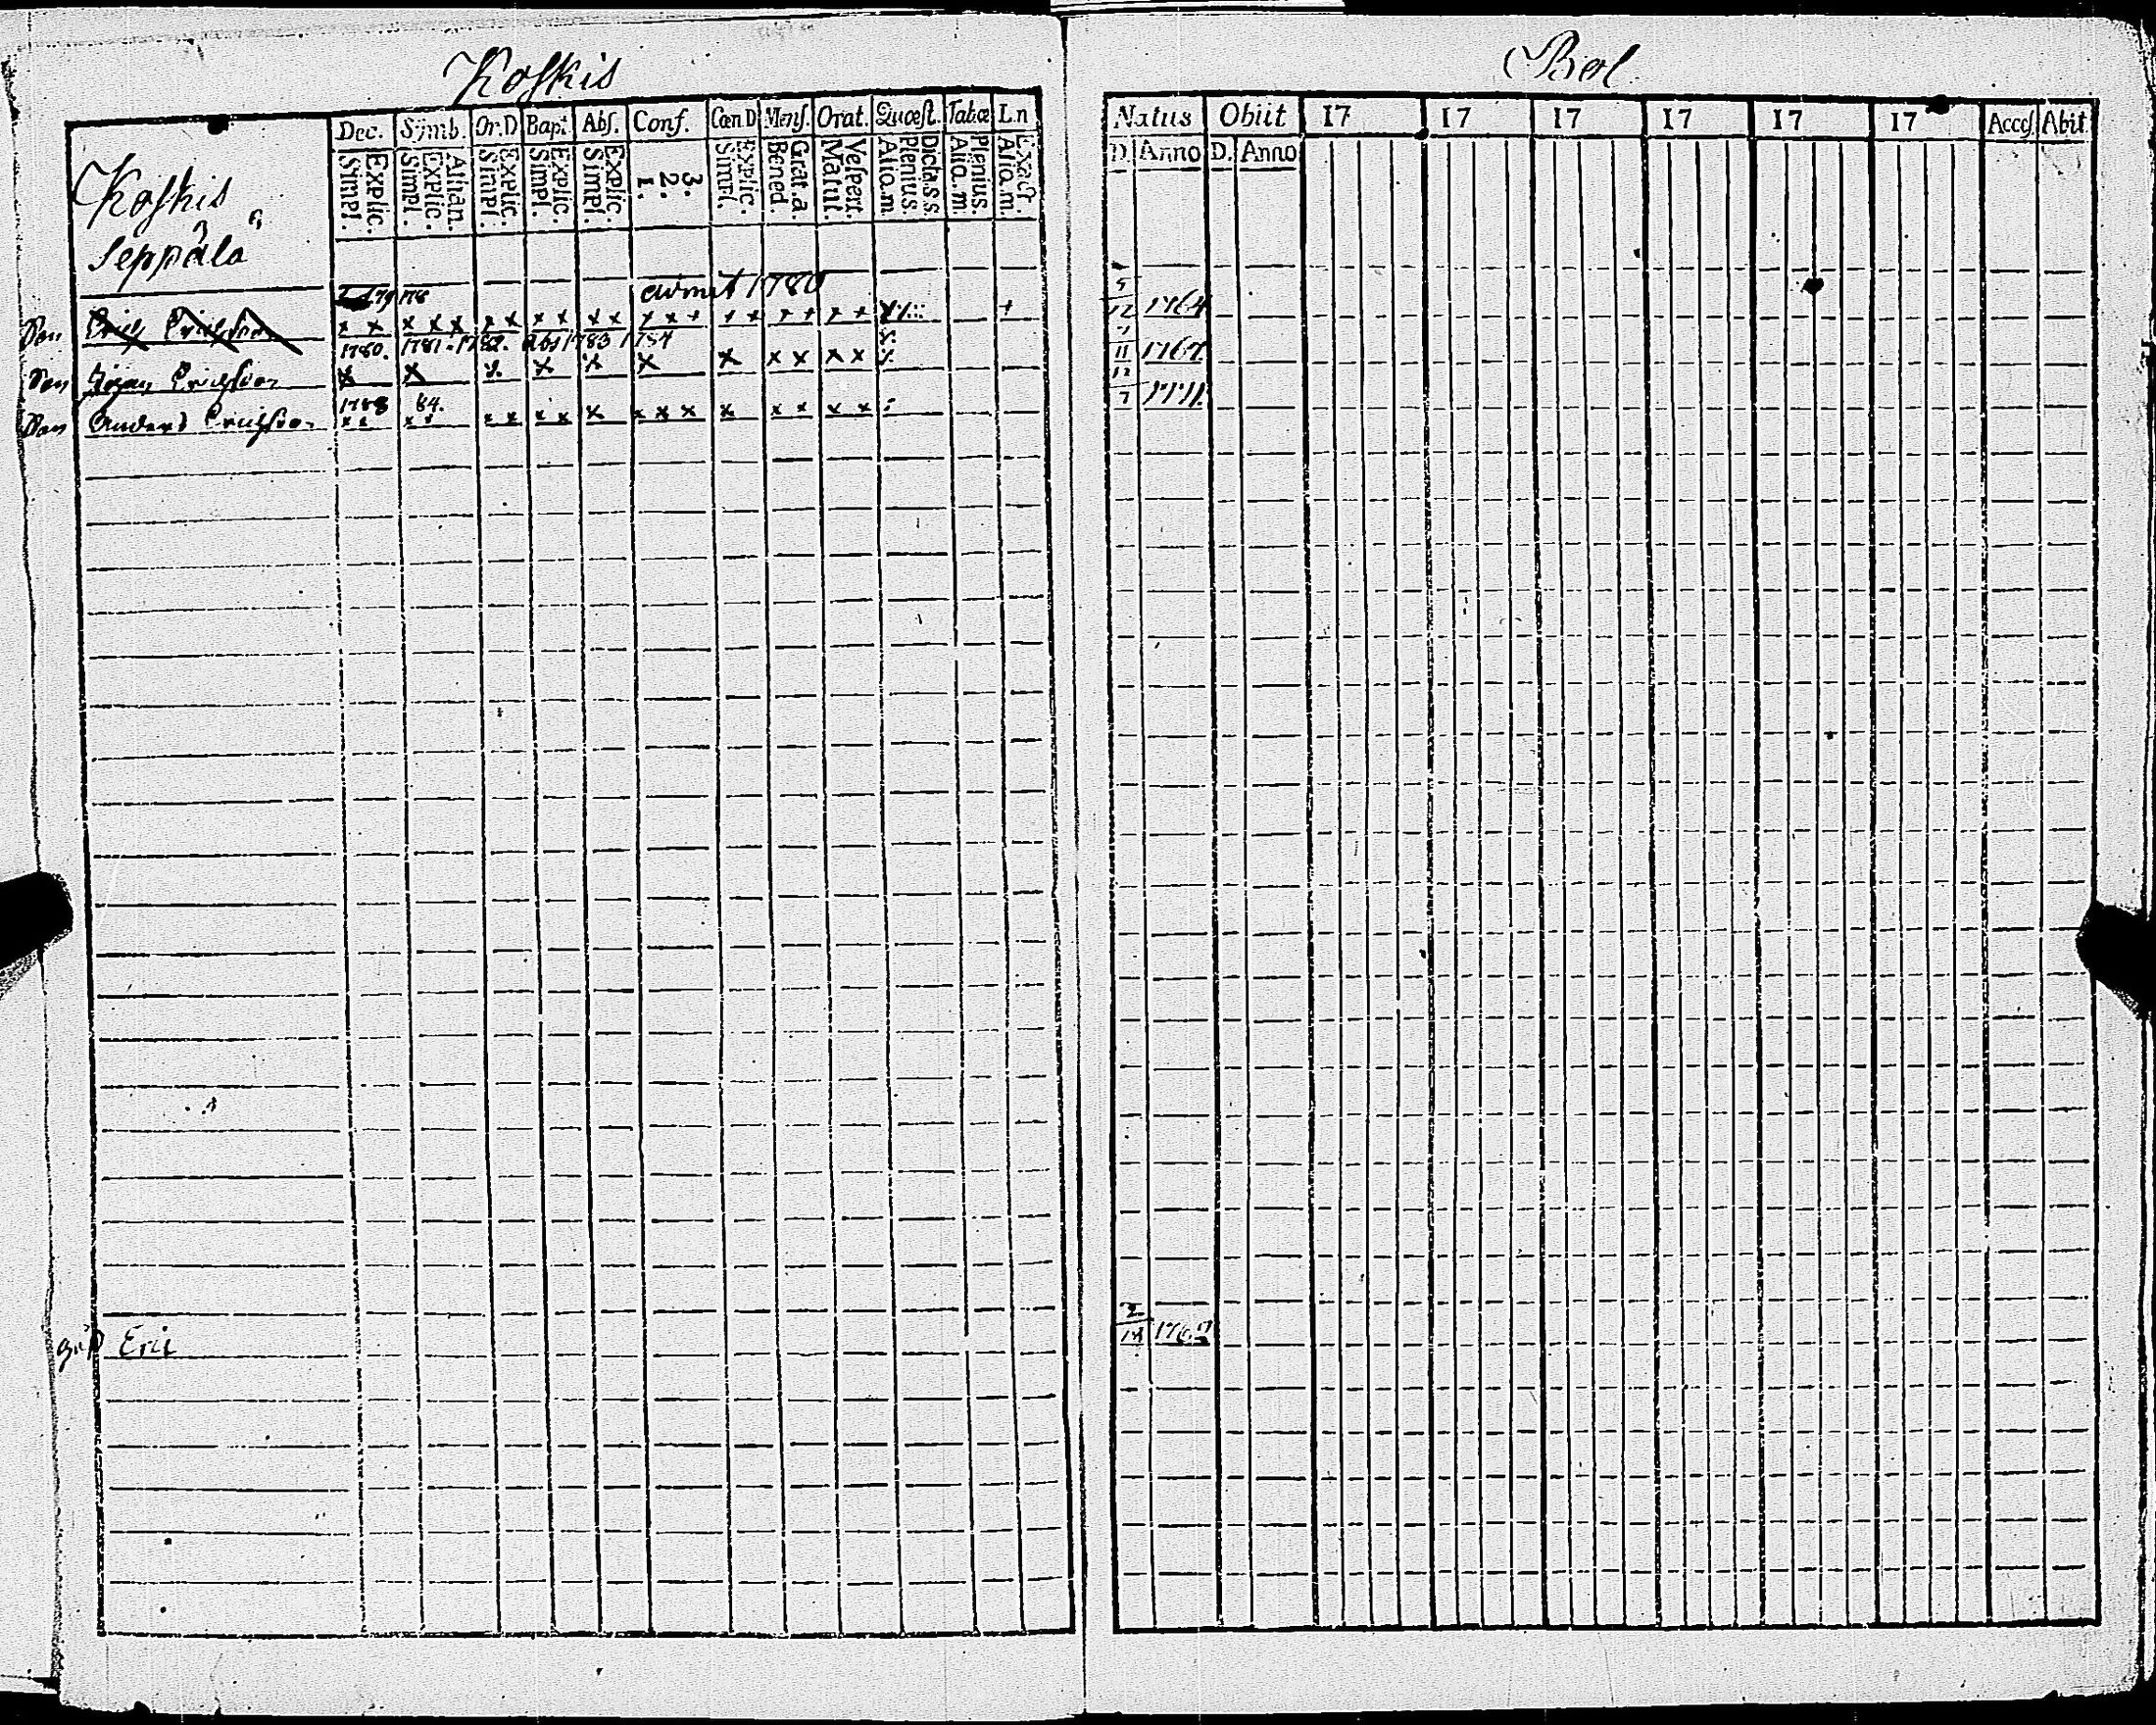 Koskis
Bol
Dec. Symb. Or.D Bapt. Abs. Conf. Cœn D Mens. Orat. Quæst. Tabæ L.n
Natus Obiit 17 17 17 17 17 17 Access Abit
Simpl. Explic. Simpl. Explic. Athan. Simpl. Explic. Simpl. Explic. Simpl. Explic. 1. 2. 3. Simpl. Explic. Bened. Grat.a. Matut. Vespert. Alio.m. Plenius. Dicta.s.s. Alio.m. Plenius. Alio.m. Exact.
D. Anno D. Anno
Koskis
Seppälä
admit 1780
Son Eric Ericsson x x x x x x x x x x x x x x x x x x x x + 5/12 1764
1780. 1781. 1782. abs 1783 1784
Son Ericsson x x x x x x x x x x x 11 1767
1783 84.
Son Anders Ericsson x x x x x x x x x x x x x x x x x x 12/7 1771
Eric